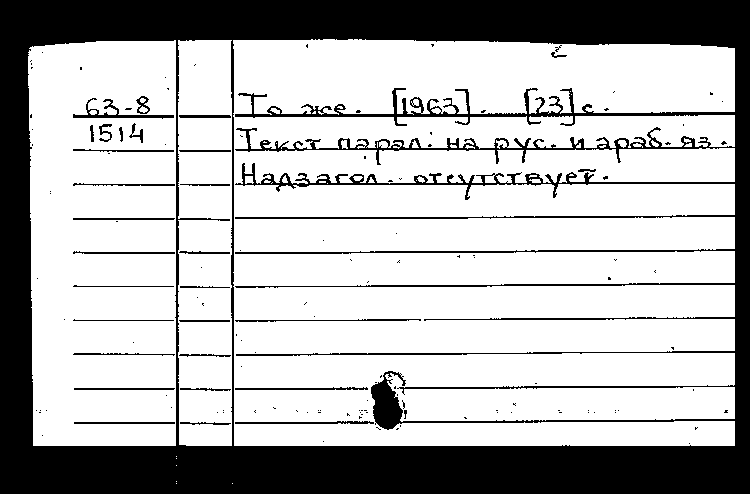 2
63-8 То же. [1963]. [23] с.
1514 Текст парал. на рус. и араб. яз.
Надзагол. отсутствует.